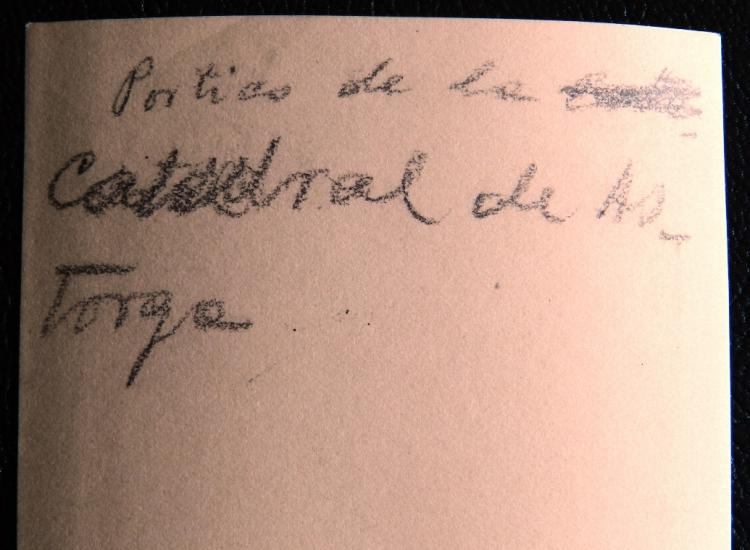 Portico de la
Catedral de As_
torga